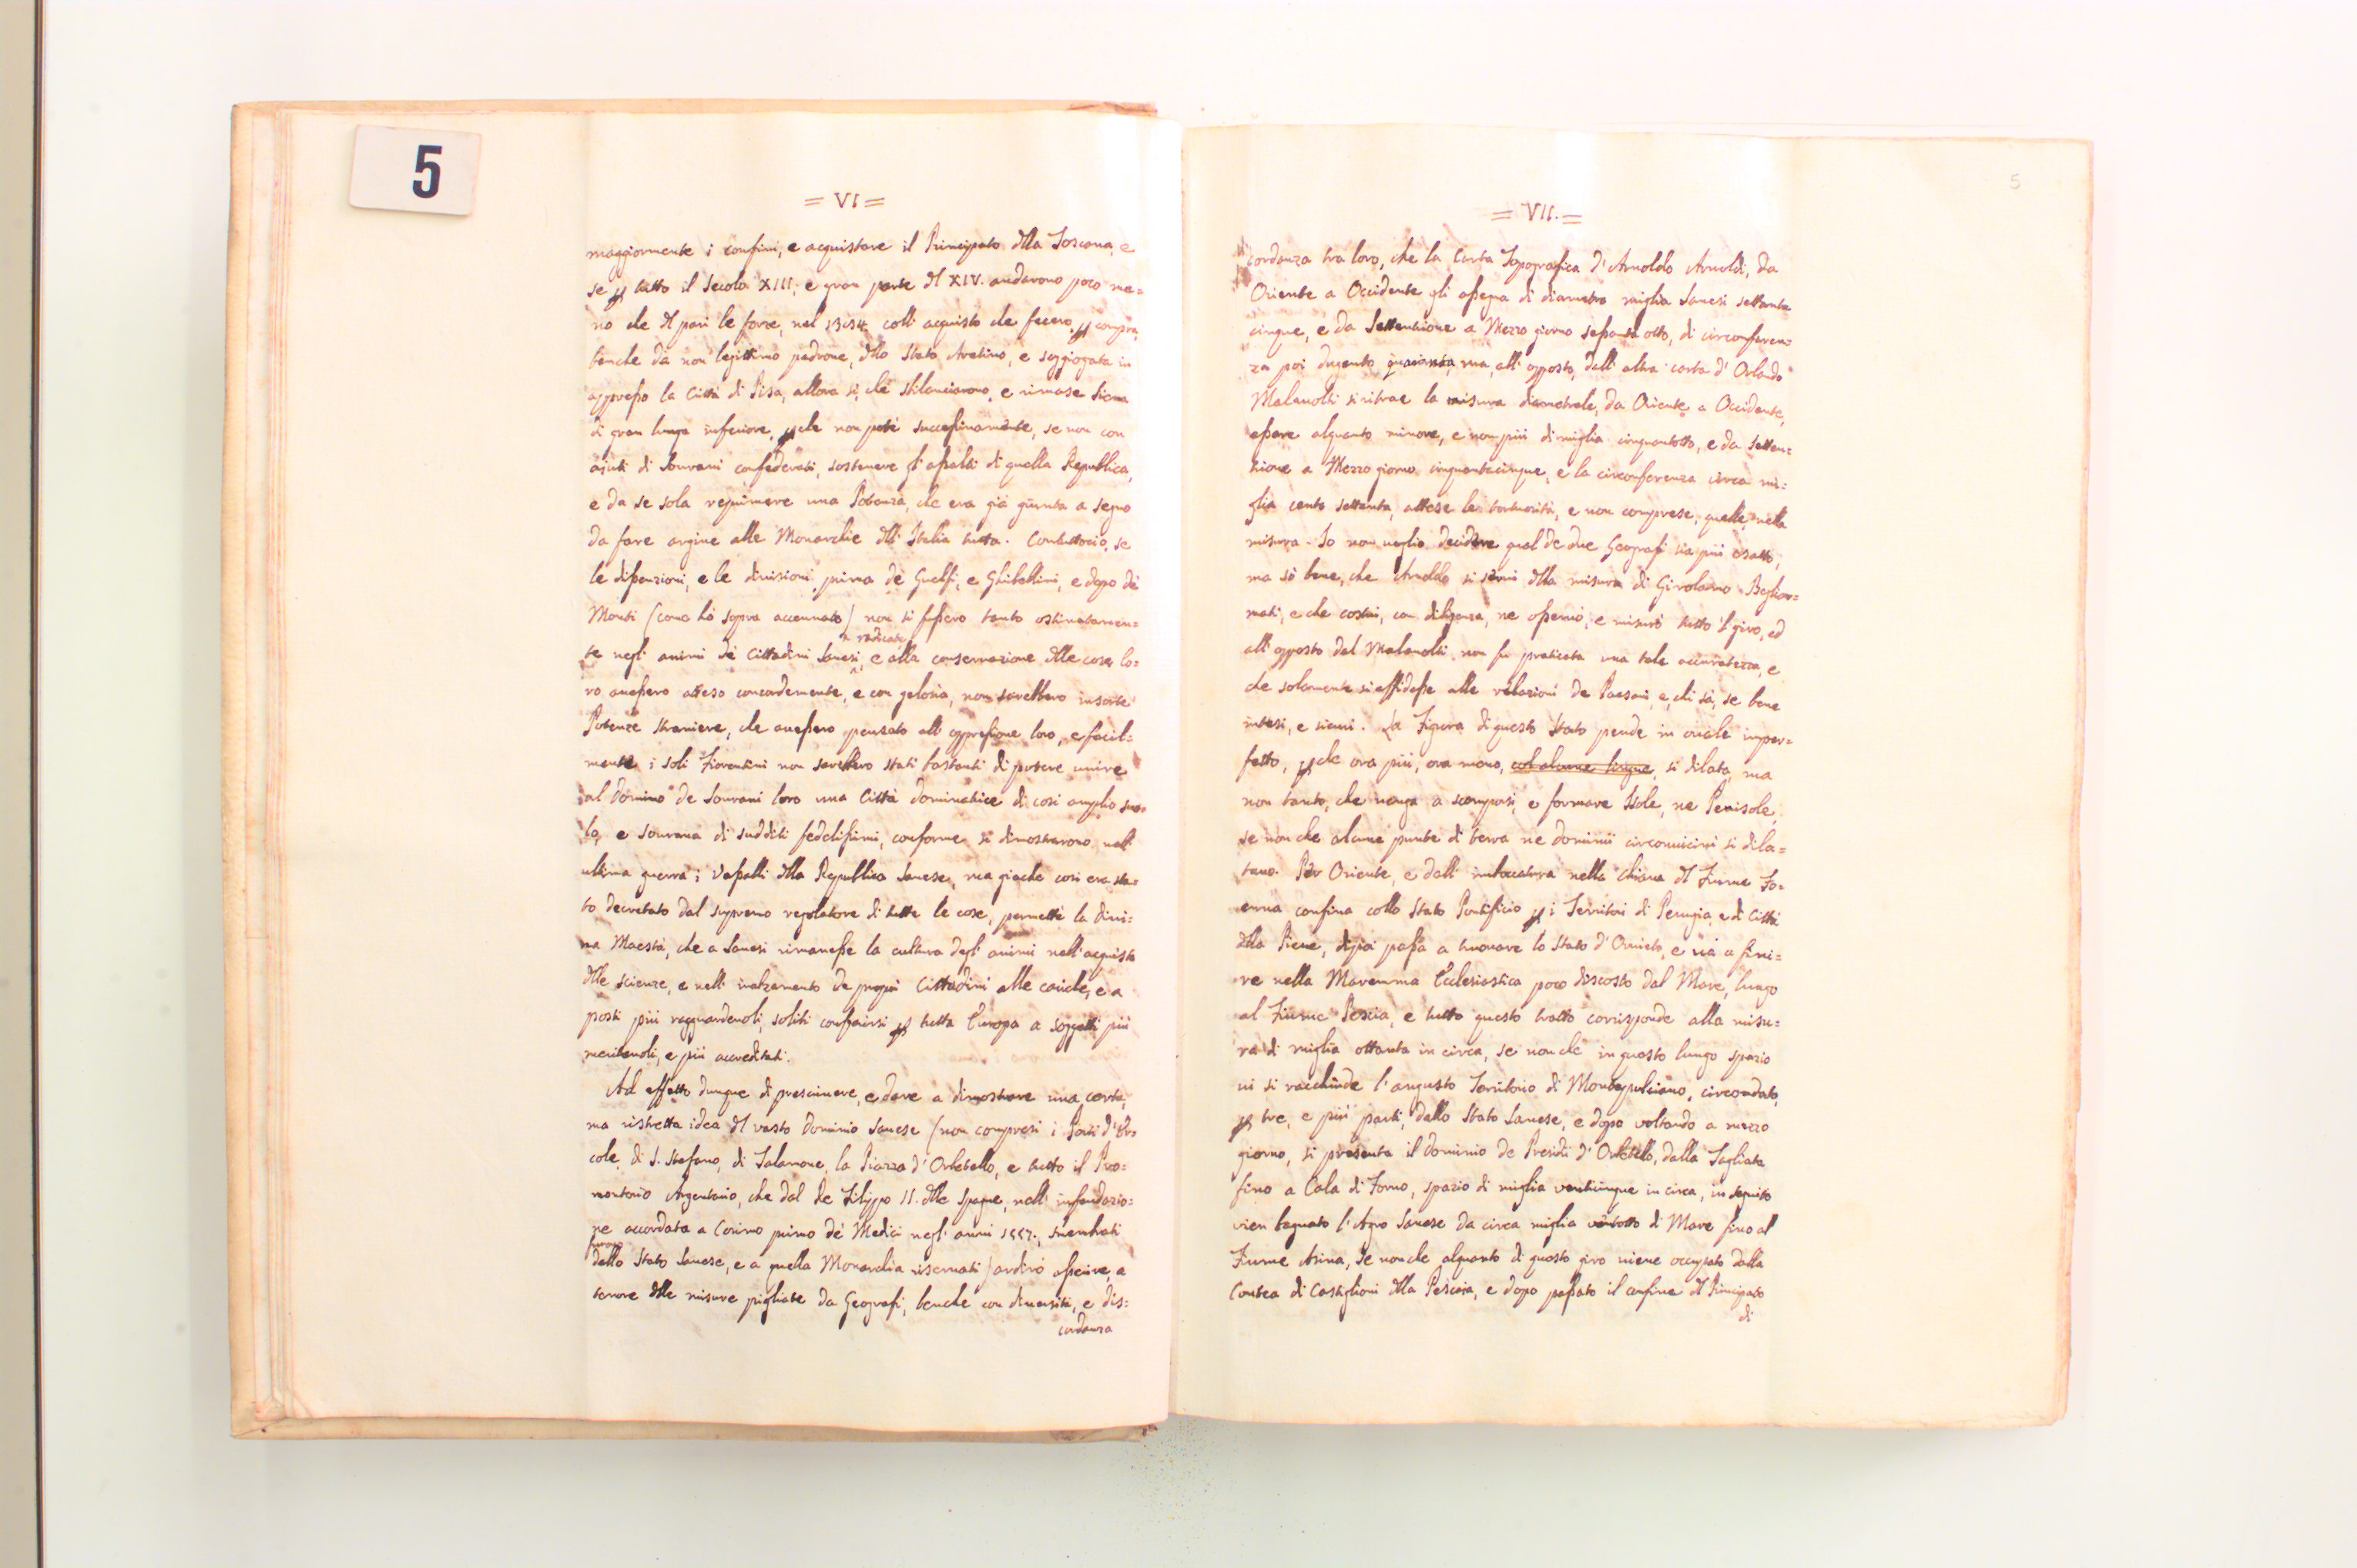 5
= VI =
maggiormente i confini, e acquistare il Principato dlla Toscana, e
se p tutto il secolo XIII, e gran parte dl XIV. andarono poco me=
no che dl pari le forze, nel 1384 coll' acquisto che fecero, p compra,
benche da non legittimo padrone, dllo Stato Aretino, e soggiogata in
appresso la Città di Pisa, allora si, che sbilanciarono, e rimase Siena
di gran lunga inferiore, p che non potè successivamente, se non con
ajuti di Sovrani confederati, sostenere gl' assalti di quella Republica,
e da se sola reprimere una Potenza, che era già giunta a segno
da fare argine alle Monarchie dll' Italia tutta. Contuttociò, se
le dissenzioni, e le divisioni prima de' Guelfi, e Ghibellini, e dopo de'
Monti (come hò sopra accennato) non si fussero tanto ostinatamen=
te negl' animi de' Cittadini Sanesi radicate, e alla conservazione dlle cose lo=
ro avessero atteso concordemente, e con gelosia, non sarebbero insorte
Potenze straniere, che avessero pensato all' oppressione loro, e facil=
mente i soli Fiorentini non sarebbero stati bastanti di potere unire
al dominio de Sovrani loro una Città dominatrice di così ampio sta=
to, e sovrana di sudditi fedelissimi, conforme si dimostrarono nell'
ultima guerra i Vassalli dlla Republica Sanese, ma giache così era sta=
to decretato dal supremo regolatore di tutte le cose, permettè la divi=
na Maestà, che a Sanesi rimanesse la cultura degl' animi nell' acquisto
dlle scienze, e nell' inalzamento de propri Cittadini alle cariche, e a
posti più ragguardevoli, soliti conferirsi p tutta Europa a soggetti più
meritevoli, e più accreditati.
Ad effetto dunque di prescrivere, e dare a dimostrare una certa,
ma ristretta idea dl vasto dominio Sanese (non compresi i Porti d' Er=
cole, di S. Stefano, di Talamone, la Piazza d' Orbetello, e tutto il Pro=
montorio Argentario, che dal Re Filippo II. dlle Spagne, nell' infeudazio=
ne accordata a Cosimo primo de' Medici negl' anni 1557., smembrati
furono
dallo Stato Sanese, e a quella Monarchia riservati) ardirò asserire, a
tenore dlle misure pigliate da Geografi, benche con diversità, e dis=
cordanza
5
= VII. =
cordanza tra loro, che la Carta Topografica d' Arnoldo Arnoldi, da
Oriente a Occidente gli assegna di diametro miglia Sanesi settanta
cinque, e da Settentrione a Mezzo giorno sessant' otto, di circonferen=
za poi ducento quaranta, ma, all' opposto, dall' altra carta d' Orlando
Malavolti si ritrae la misura diametrale, da Oriente a Occidente,
essere alquanto minore, e non più di miglia cinquantotto, e da Setten=
trione a Mezzo giorno cinquantacinque, e la circonferenza circa mi=
glia cento settanta, attese le tortuosità, e non comprese, quelle, nella
misura. Io non voglio decidere qual de due Geografi sia più esatto,
ma sò bene, che Arnoldo si servì dlla misura di Girolamo Bagliou=
mati, e che costui, con diligenza, ne osservò, e misurò tutto 'l giro, ed
all' opposto dal Malavolti non fu praticata una tale accuratezza, e
che solamente si affidasse alle relazioni de Paesani, e, chi sà, se bene
intesi, e sicuri. La Figura di questo Stato pende in ovale imper=
fetto, p che ora più, ora meno, col alcune lingue, si dilata, ma
non tanto, che venga a scomporsi, e formare Isole, ne Penisole,
se non che alcune punte di terra ne dominii circonvicini si dila=
tano. Per Oriente, e dall' imboccatura nella Chiana dl Fiume Fo=
enna confina collo Stato Pontificio p i Territori di Perugia, e di Città
dlla Pieve, dipoi passa a trovare lo Stato d' Orvieto, e và a fini=
re nella Maremma Ecclesiastica poco discosto dal Mare, lungo
al Fiume Pescia, e tutto questo tratto corrisponde alla misu=
ra di miglia ottanta in circa, se non che in questo lungo spazio
vi si racchiude l' angusto Territorio di Montepulciano, circondato,
p tre, e più parti, dallo Stato Sanese, e dopo voltando a mezzo
giorno, si presenta il dominio de Presidi d' Orbetello, dalla Tagliata
fino a Cala di Forno, spazio di miglia venticinque in circa, in seguito
vien bagnato l' Agro Sanese da circa miglia ventotto di Mare fino al
Fiume Alma, se non che alquanto di questo giro viene occupato dalla
Contea di Castiglioni dlla Pescaia, e dopo passato il confine dl Principato
di